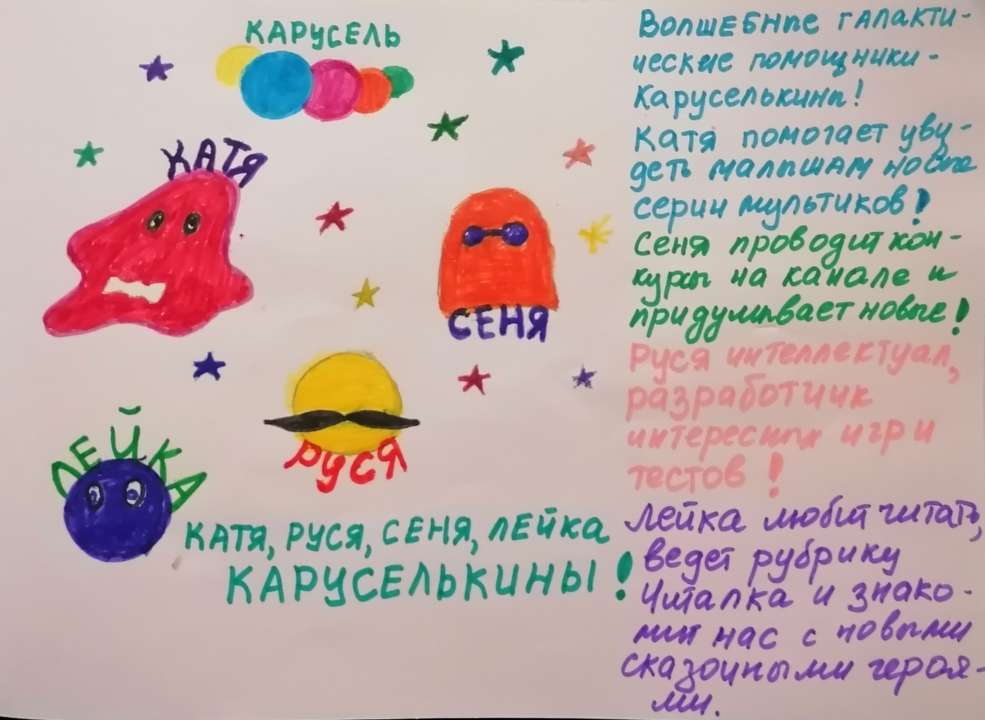 КАРУСЕЛЬ
КАТЯ
СЕНЯ
РУСЯ
ЛЕЙКА
КАТЯ, РУСЯ, СЕНЯ, ЛЕЙКА
КАРУСЕЛЬКИНЫ!
Волшебные галакти-
ческие помощники-
Карусельkины!
Катя помогает уви-
деть малышам новые
серии мультиков!
Сеня проводит кон-
курсы на канале и
придумывает новые!
Руся интеллектуал,
разработчик
интересных игр и
тестов!
Лейка любит читать,
ведет рубрику
Читалка и знако-
мит нас с новыми
сказочными героя-
ми.